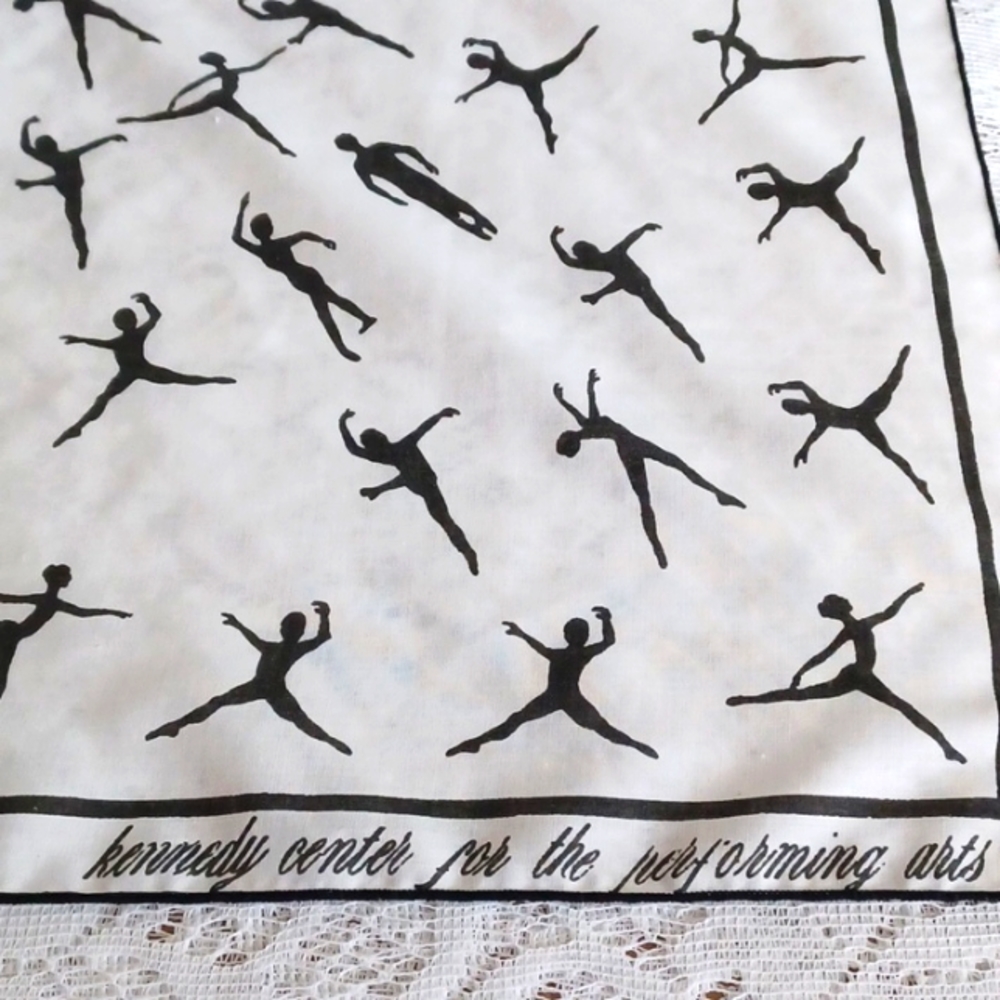 kennedy center for the performing arts